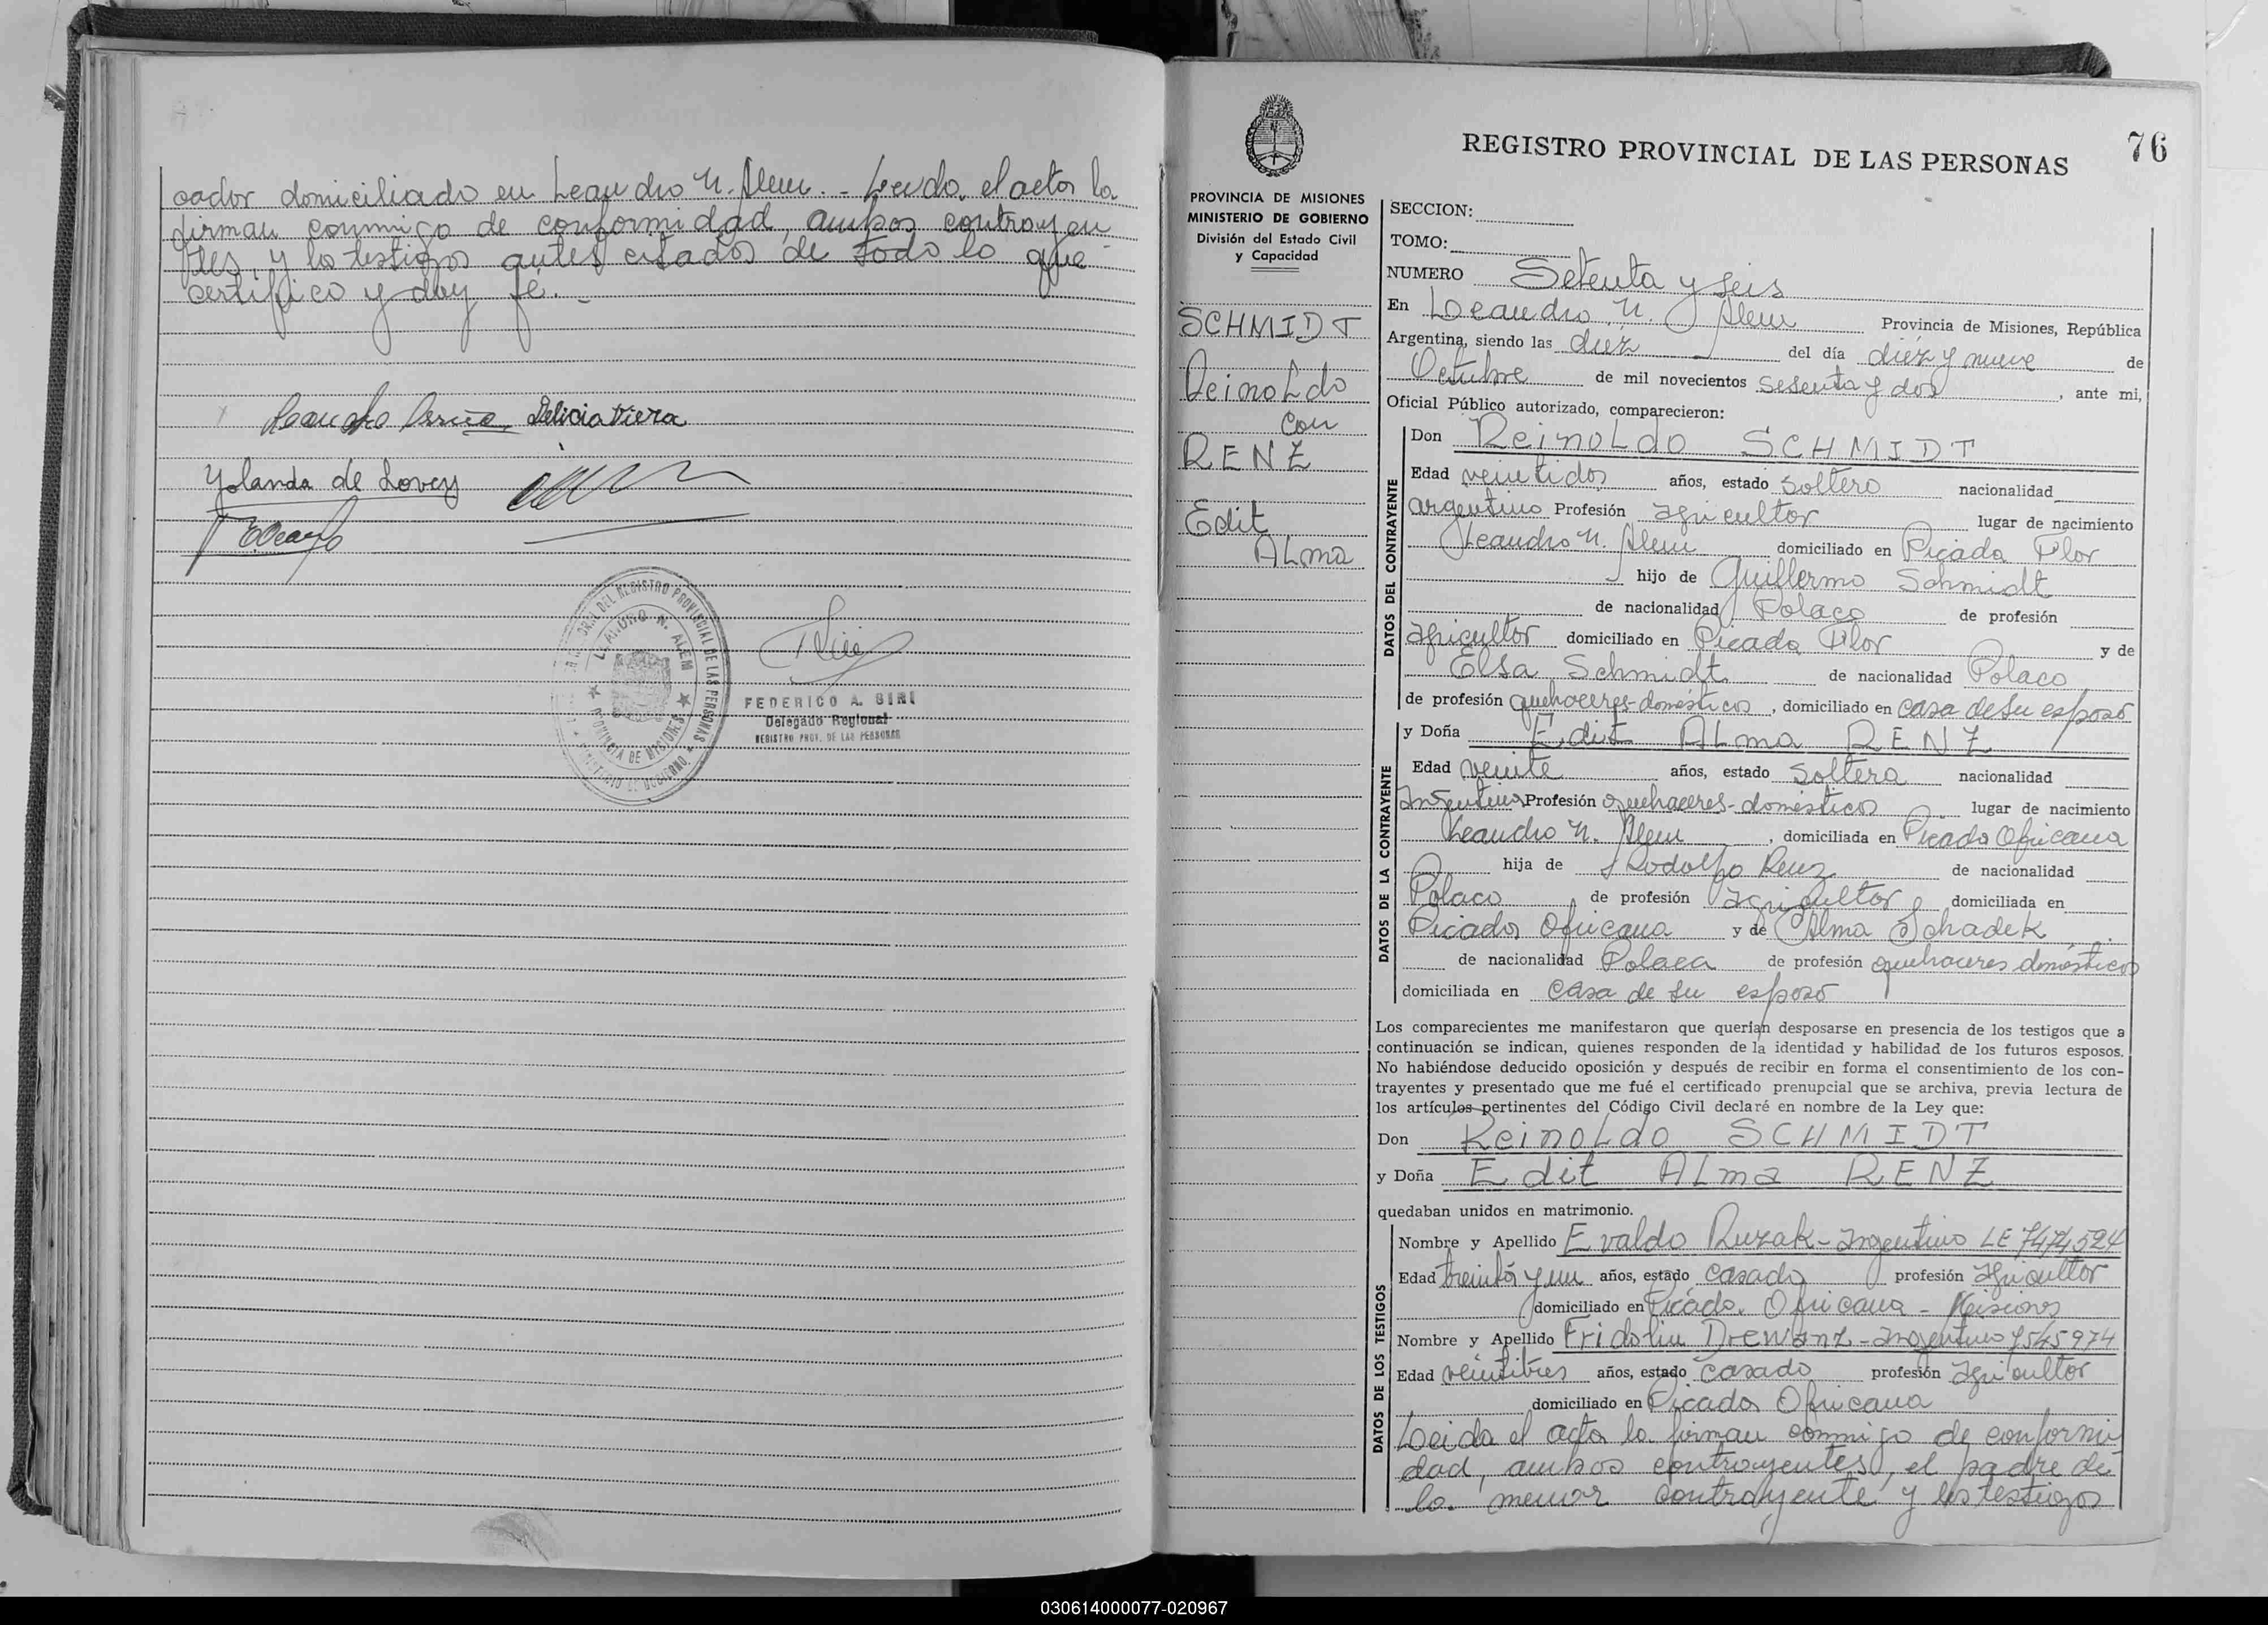 cador domiciliado en Leandro N. Alem. - Leida el acta la
firman conmigo de conformidad, ambos contrayen
tes, y los testigos antes citados de todo lo que
certifico y doy fé. -
Delicia Viera
Yolanda de Lovey
REGISTRO PROVINCIAL DE LAS PERSONAS
LEANDRO N. ALEM
PROVINCIA DE MISIONES
MINISTERIO DE GOBIERNO
FEDERICO A. SIRI
Delegado Regional
REGISTRO PROV. DE LAS PERSONAS
76
REGISTRO PROVINCIAL DE LAS PERSONAS
PROVINCIA DE MISIONES
MINISTERIO DE GOBIERNO
División del Estado Civil
y Capacidad
SCHMIDT
Reinoldo
con
RENZ
Edit
Alma
SECCION:
TOMO:
NUMERO Setenta y seis
En Leandro N. Alem Provincia de Misiones, República
Argentina, siendo las diez del día diez y nueve de
Octubre de mil novecientos sesenta y dos, ante mi,
Oficial Público autorizado, comparecieron:
DATOS DEL CONTRAYENTE
Don Reinoldo SCHMIDT
Edad veintidos años, estado soltero nacionalidad
argentino Profesión agricultor lugar de nacimiento
Leandro N. Alem domiciliado en Picada Flor
hijo de Guillermo Schmidt
de nacionalidad Polaco de profesión
agricultor domiciliado en Picada Flor y de
Elsa Schmidt de nacionalidad Polaco
de profesión quehaceres-domésticos, domiciliado en casa de su esposo
DATOS DE LA CONTRAYENTE
y Doña Edit Alma RENZ
Edad veinte años, estado soltera nacionalidad
Argentina Profesión quehaceres-domésticos lugar de nacimiento
Leandro N. Alem, domiciliada en Picada Africana
hija de Rodolfo Renz de nacionalidad
Polaco de profesión agricultor domiciliada en
Picada Africana y de Alma Schadek
de nacionalidad Polaca de profesión quehaceres domésticos
domiciliada en casa de su esposo
Los comparecientes me manifestaron que querían desposarse en presencia de los testigos que a
continuación se indican, quienes responden de la identidad y habilidad de los futuros esposos.
No habiéndose deducido oposición y después de recibir en forma el consentimiento de los con-
trayentes y presentado que me fué el certificado prenupcial que se archiva, previa lectura de
los artículos pertinentes del Código Civil declaré en nombre de la Ley que:
Don Reinoldo SCHMIDT
y Doña Edit Alma RENZ
quedaban unidos en matrimonio.
DATOS DE LOS TESTIGOS
Nombre y Apellido Evaldo Ruzak - argentino LE 7474524
Edad treinta y un años, estado casado profesión agricultor
domiciliado en Picada Africana - Misiones
Nombre y Apellido Fridolin Drewanz - argentino 7545974
Edad veintitres años, estado casado profesión agricultor
domiciliado en Picada Africana
Leida el acta la firman conmigo de conformi
dad, ambos contrayentes, el padre de
la menor contrayente y los testigos
030614000077-020967